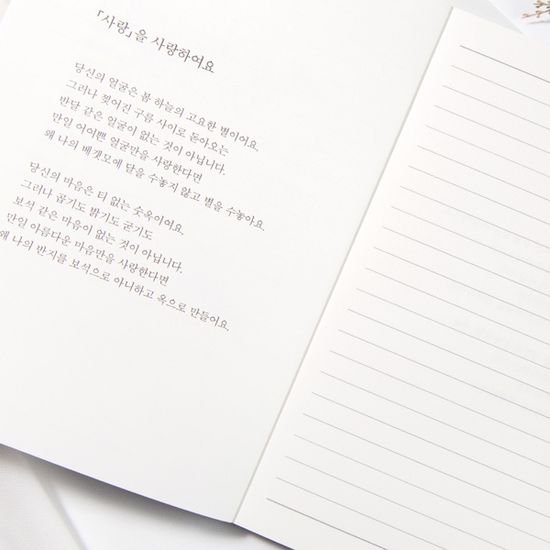 「사랑」을 사랑하여요
당신의 얼굴은 봄 하늘의 고요한 별이어요.
그러나 찢어진 구름 사이로 돋아오는
반달 같은 얼굴이 없는 것이 아닙니다.
만일 어여쁜 얼굴만을 사랑한다면
왜 나의 베갯모에 달을 수놓지 않고 별을 수놓아요.
당신의 마음은 티 없는 숫옥이어요.
그러나 곱기도 밝기도 굳기도
보석 같은 마음이 없는 것이 아닙니다.
만일 아름다운 마음만을 사랑한다면
왜 나의 반지를 보석으로 아니하고 옥으로 만들어요.